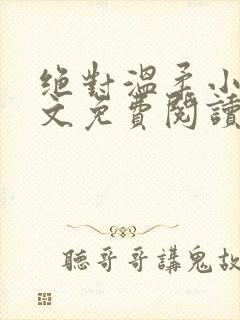 絕對溫柔小
文免費閱讀
聽哥哥講鬼故